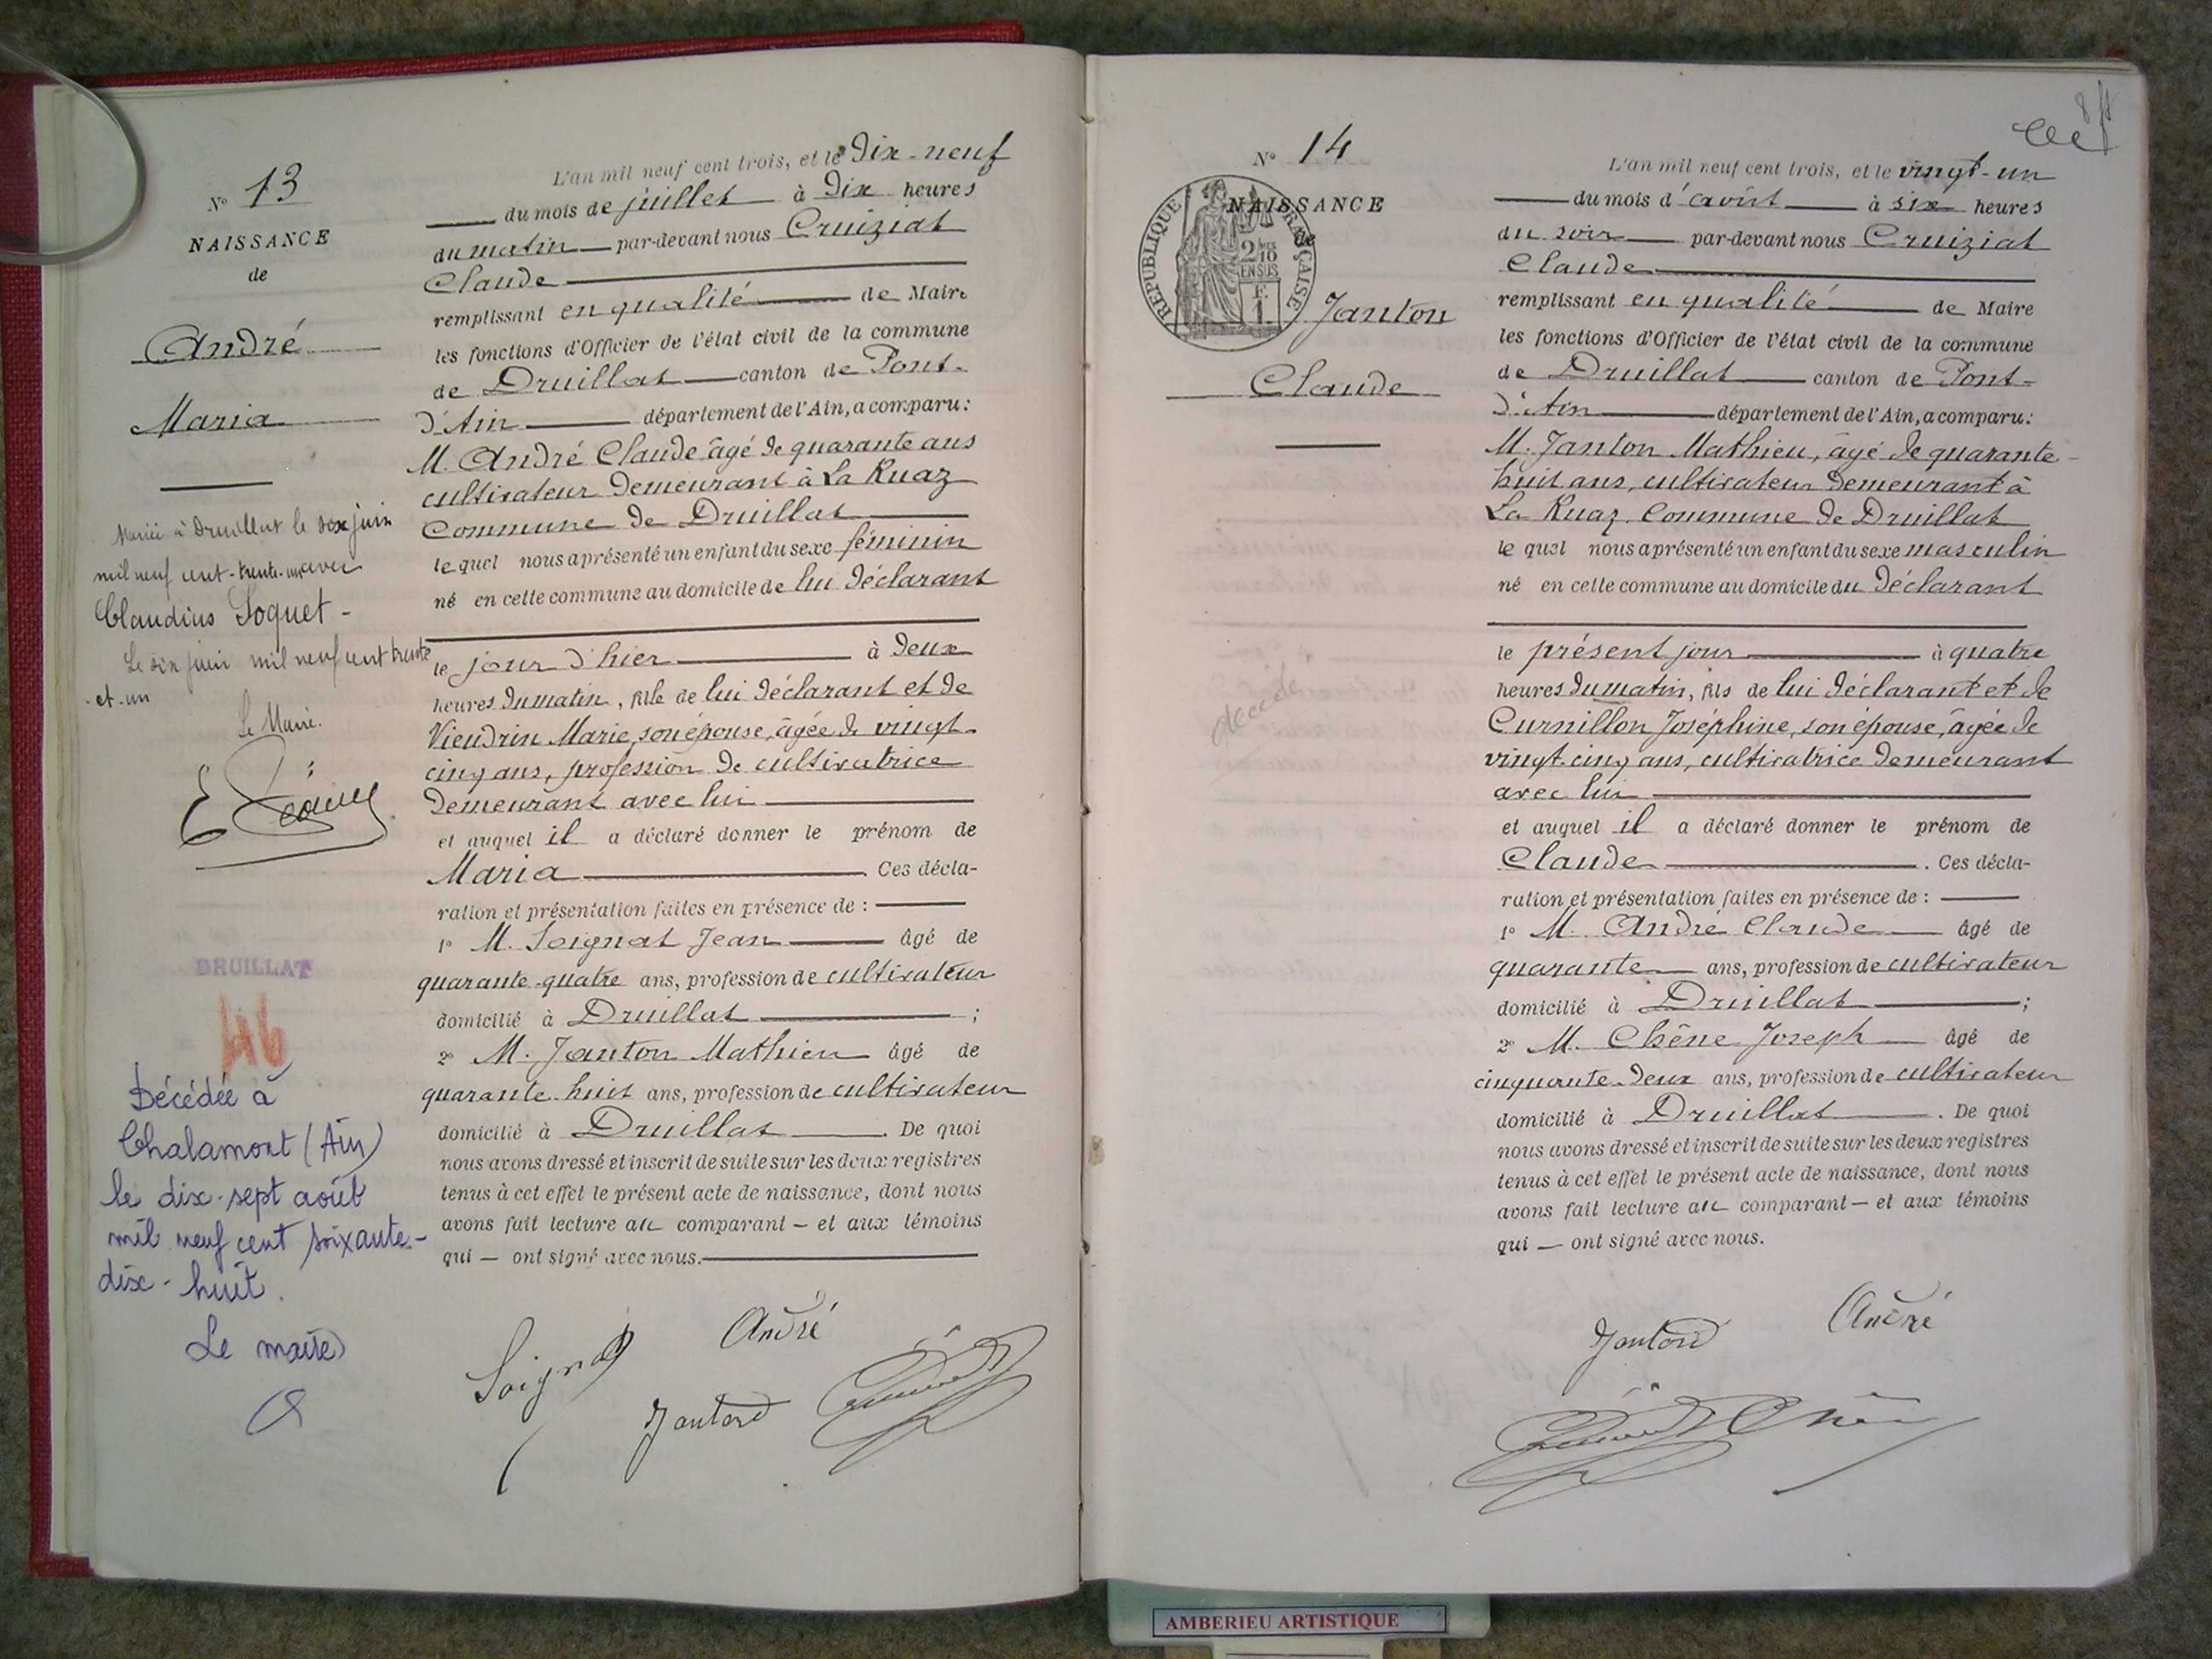 N° 13
NAISSANCE
de
André
Maria
Mariée à Druillat le six juin
mil neuf cent-trente-un avec
Claudius Soquet -
Le six juin mil neuf cent trente
-et-un
Le Maire.
DRUILLAT
46
Décédée à
Chalamont (Ain)
le dix-sept août
mil neuf cent soixante-
dix-huit.
Le maire
L'an mil neuf cent trois, et le Dix-neuf
du mois de juillet à Dix heures
du matin par-devant nous Cruiziat
Claude
remplissant en qualité de Maire
les fonctions d'Officier de l'état civil de la commune
de Druillat canton de Pont-
d'Ain département de l'Ain, a comparu:
M. André Claude âgé de quarante ans
cultivateur demeurant à La Ruaz
Commune de Druillat
le quel nous a présenté un enfant du sexe féminin
né en cette commune au domicile de lui déclarant
le jour d'hier à deux
heures du matin, fille de lui déclarant et de
Vieudrin Marie, son épouse, âgée de vingt-
cinq ans, profession de cultivatrice
demeurant avec lui
et auquel il a déclaré donner le prénom de
Maria. Ces décla-
ration et présentation faites en présence de :
1° M. Soignat Jean âgé de
quarante-quatre ans, profession de cultivateur
domicilié à Druillat ;
2° M. Janton Mathieu âgé de
quarante huit ans, profession de cultivateur
domicilié à Druillat. De quoi
nous avons dressé et inscrit de suite sur les deux registres
tenus à cet effet le présent acte de naissance, dont nous
avons fait lecture au comparant — et aux témoins
qui — ont signé avec nous.
Soignat
André
Jantond
N° 14
NAISSANCE
de
RÉPUBLIQUE FRANÇAISE
2/10 EN SUS
Janton
Claude
décédé
L'an mil neuf cent trois, et le vingt-un
du mois d'août à six heures
du soir par-devant nous Cruiziat
Claude
remplissant en qualité de Maire
les fonctions d'Officier de l'état civil de la commune
de Druillat canton de Pont-
d'Ain département de l'Ain, a comparu:
M. Janton Mathieu, âgé de quarante-
huit ans, cultivateur demeurant à
La Ruaz, Commune de Druillat
le quel nous a présenté un enfant du sexe masculin
né en cette commune au domicile du déclarant
le présent jour à quatre
heures du matin, fils de lui déclarant et de
Curnillon Joséphine, son épouse, âgée de
vingt-cinq ans, cultivatrice demeurant
avec lui
et auquel il a déclaré donner le prénom de
Claude. Ces décla-
ration et présentation faites en présence de :
1° M. André Claude âgé de
quarante ans, profession de cultivateur
domicilié à Druillat ;
2° M. Chêne Joseph âgé de
cinquante-deux ans, profession de cultivateur
domicilié à Druillat. De quoi
nous avons dressé et inscrit de suite sur les deux registres
tenus à cet effet le présent acte de naissance, dont nous
avons fait lecture au comparant — et aux témoins
qui — ont signé avec nous.
Jantond
André
AMBERIEU ARTISTIQUE